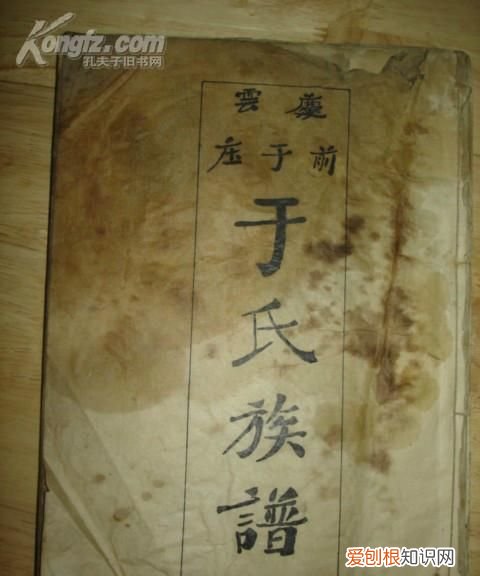 Kongfz.com
孔夫子旧书网
慶雲
前于庄
于氏族譜
爱刨根知识网